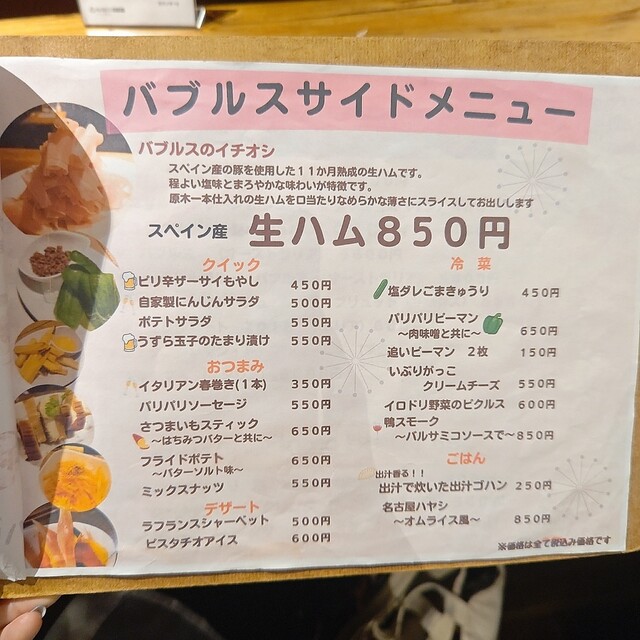 バブルスサイドメニュー
バブルスのイチオシ
スペイン産の豚を使用した11か月熟成の生ハムです。
程よい塩味とまろやかな味わいが特徴です。
原木一本仕入れの生ハムを口当たりなめらかな薄さにスライスしてお出しします
スペイン産 生ハム850円
クイック
ピリ辛ザーサイもやし 450円
自家製にんじんサラダ 500円
ポテトサラダ 550円
うずら玉子のたまり漬け 550円
おつまみ
イタリアン春巻き(1本) 350円
パリパリソーセージ 550円
さつまいもスティック
~はちみつバターと共に~ 650円
フライドポテト 650円
~バターソルト味~
ミックスナッツ 550円
デザート
ラフランスシャーベット 500円
ピスタチオアイス 600円
冷菜
塩ダレごまきゅうり 450円
パリパリピーマン
~肉味噌と共に~ 650円
追いピーマン 2枚 150円
いぶりがっこ
クリームチーズ 550円
イロドリ野菜のピクルス 600円
鴨スモーク
~バルサミコソースで~850円
ごはん
出汁香る!!
出汁で炊いた出汁ゴハン 250円
名古屋ハヤシ
~オムライス風~ 850円
※価格は全て税込み価格です